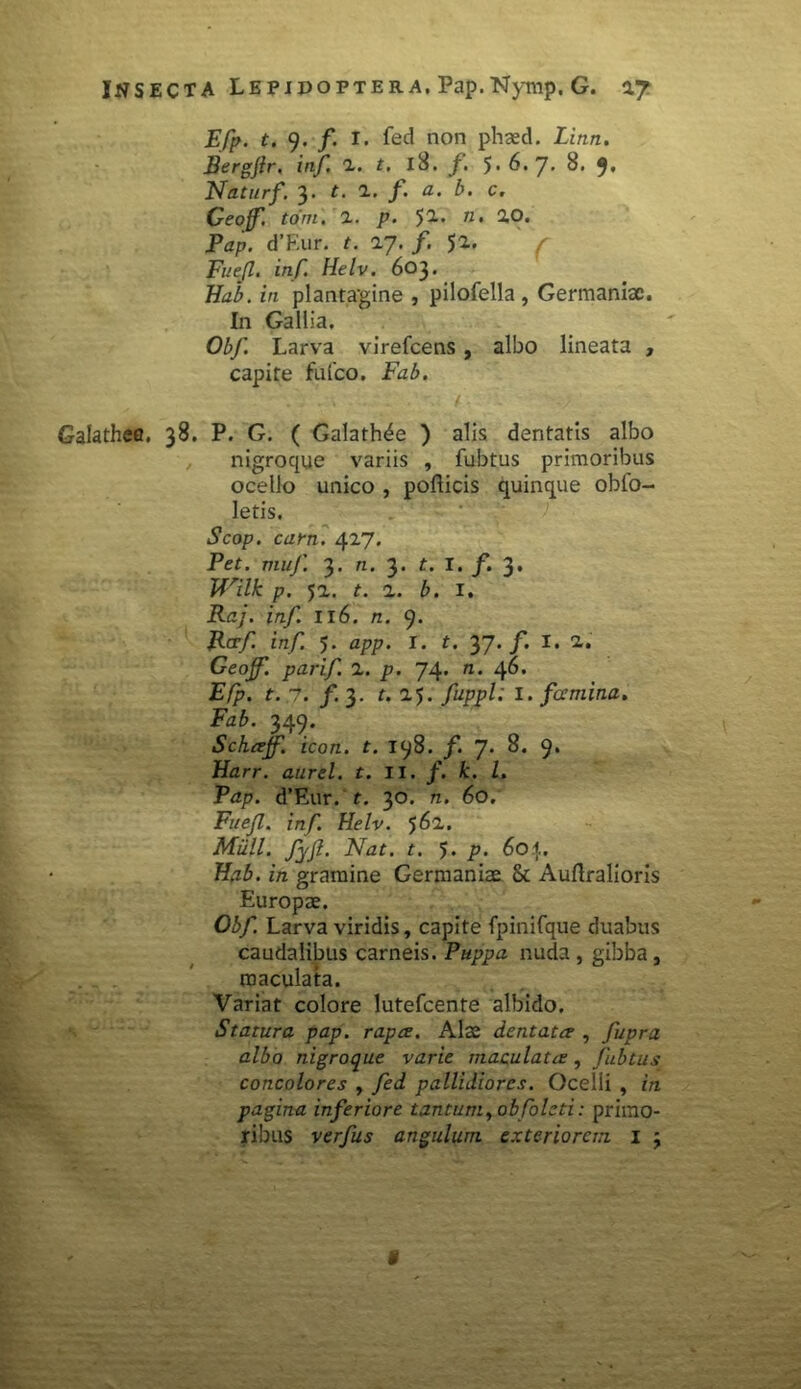 INSECTA LEPIDOPTERA. Pap. Nymp. G. 27
Eſp. t. 9. f. 1. ſed non phæd. Linn.
Bergſtr. inſ. 2. t. 18. f. 5. 6. 7. 8. 9.
Naturf. 3. t. 2. f. a. b. c.
Geoff. tom. 2. p. 52. n. 20.
Pap. d'Eur. t. 27. f. 52.
Fueſl. inſ. Helv. 603.
Hab. in plantagine , piloſella , Germaniæ.
In Gallia.
Obſ. Larva vireſcens , albo lineata ,
capite fuſco. Fab.
Galathea. 38. P. G. ( Galathée ) alis dentatis albo
nigroque variis , ſubtus primoribus
ocello unico , poſticis quinque obſo-
letis.
Scop. carn. 427.
Pet. muſ. 3. n. 3. t. 1. f. 3.
Wilk p. 52. t. 2. b. 1.
Raj. inſ. 116. n. 9.
Rœſ. inſ. 5. app. 1. t. 37. f. 1. 2.
Geoff. pariſ. 2. p. 74. n. 46.
Eſp. t. 7. f. 3. t. 25. ſuppl. 1. fœmina.
Fab. 349.
Schæff. icon. t. 198. f. 7. 8. 9.
Harr. aurel. t. 11. f. k. l.
Pap. d'Eur. t. 30. n. 60.
Fueſl. inſ. Helv. 562.
Müll. ſyſt. Nat. t. 5. p. 604.
Hab. in gramine Germaniæ & Auſtralioris
Europæ.
Obſ. Larva viridis, capite ſpiniſque duabus
caudalibus carneis. Puppa nuda , gibba ,
maculata.
Variat colore luteſcente albido.
Statura pap. rapæ. Alæ dentatæ , ſupra
albo nigroque varie maculatæ , ſubtus
concolores , ſed pallidiores. Ocelli , in
pagina inferiore tantum, obſoleti : primo-
ribus verſus angulum exteriorem 1 ;